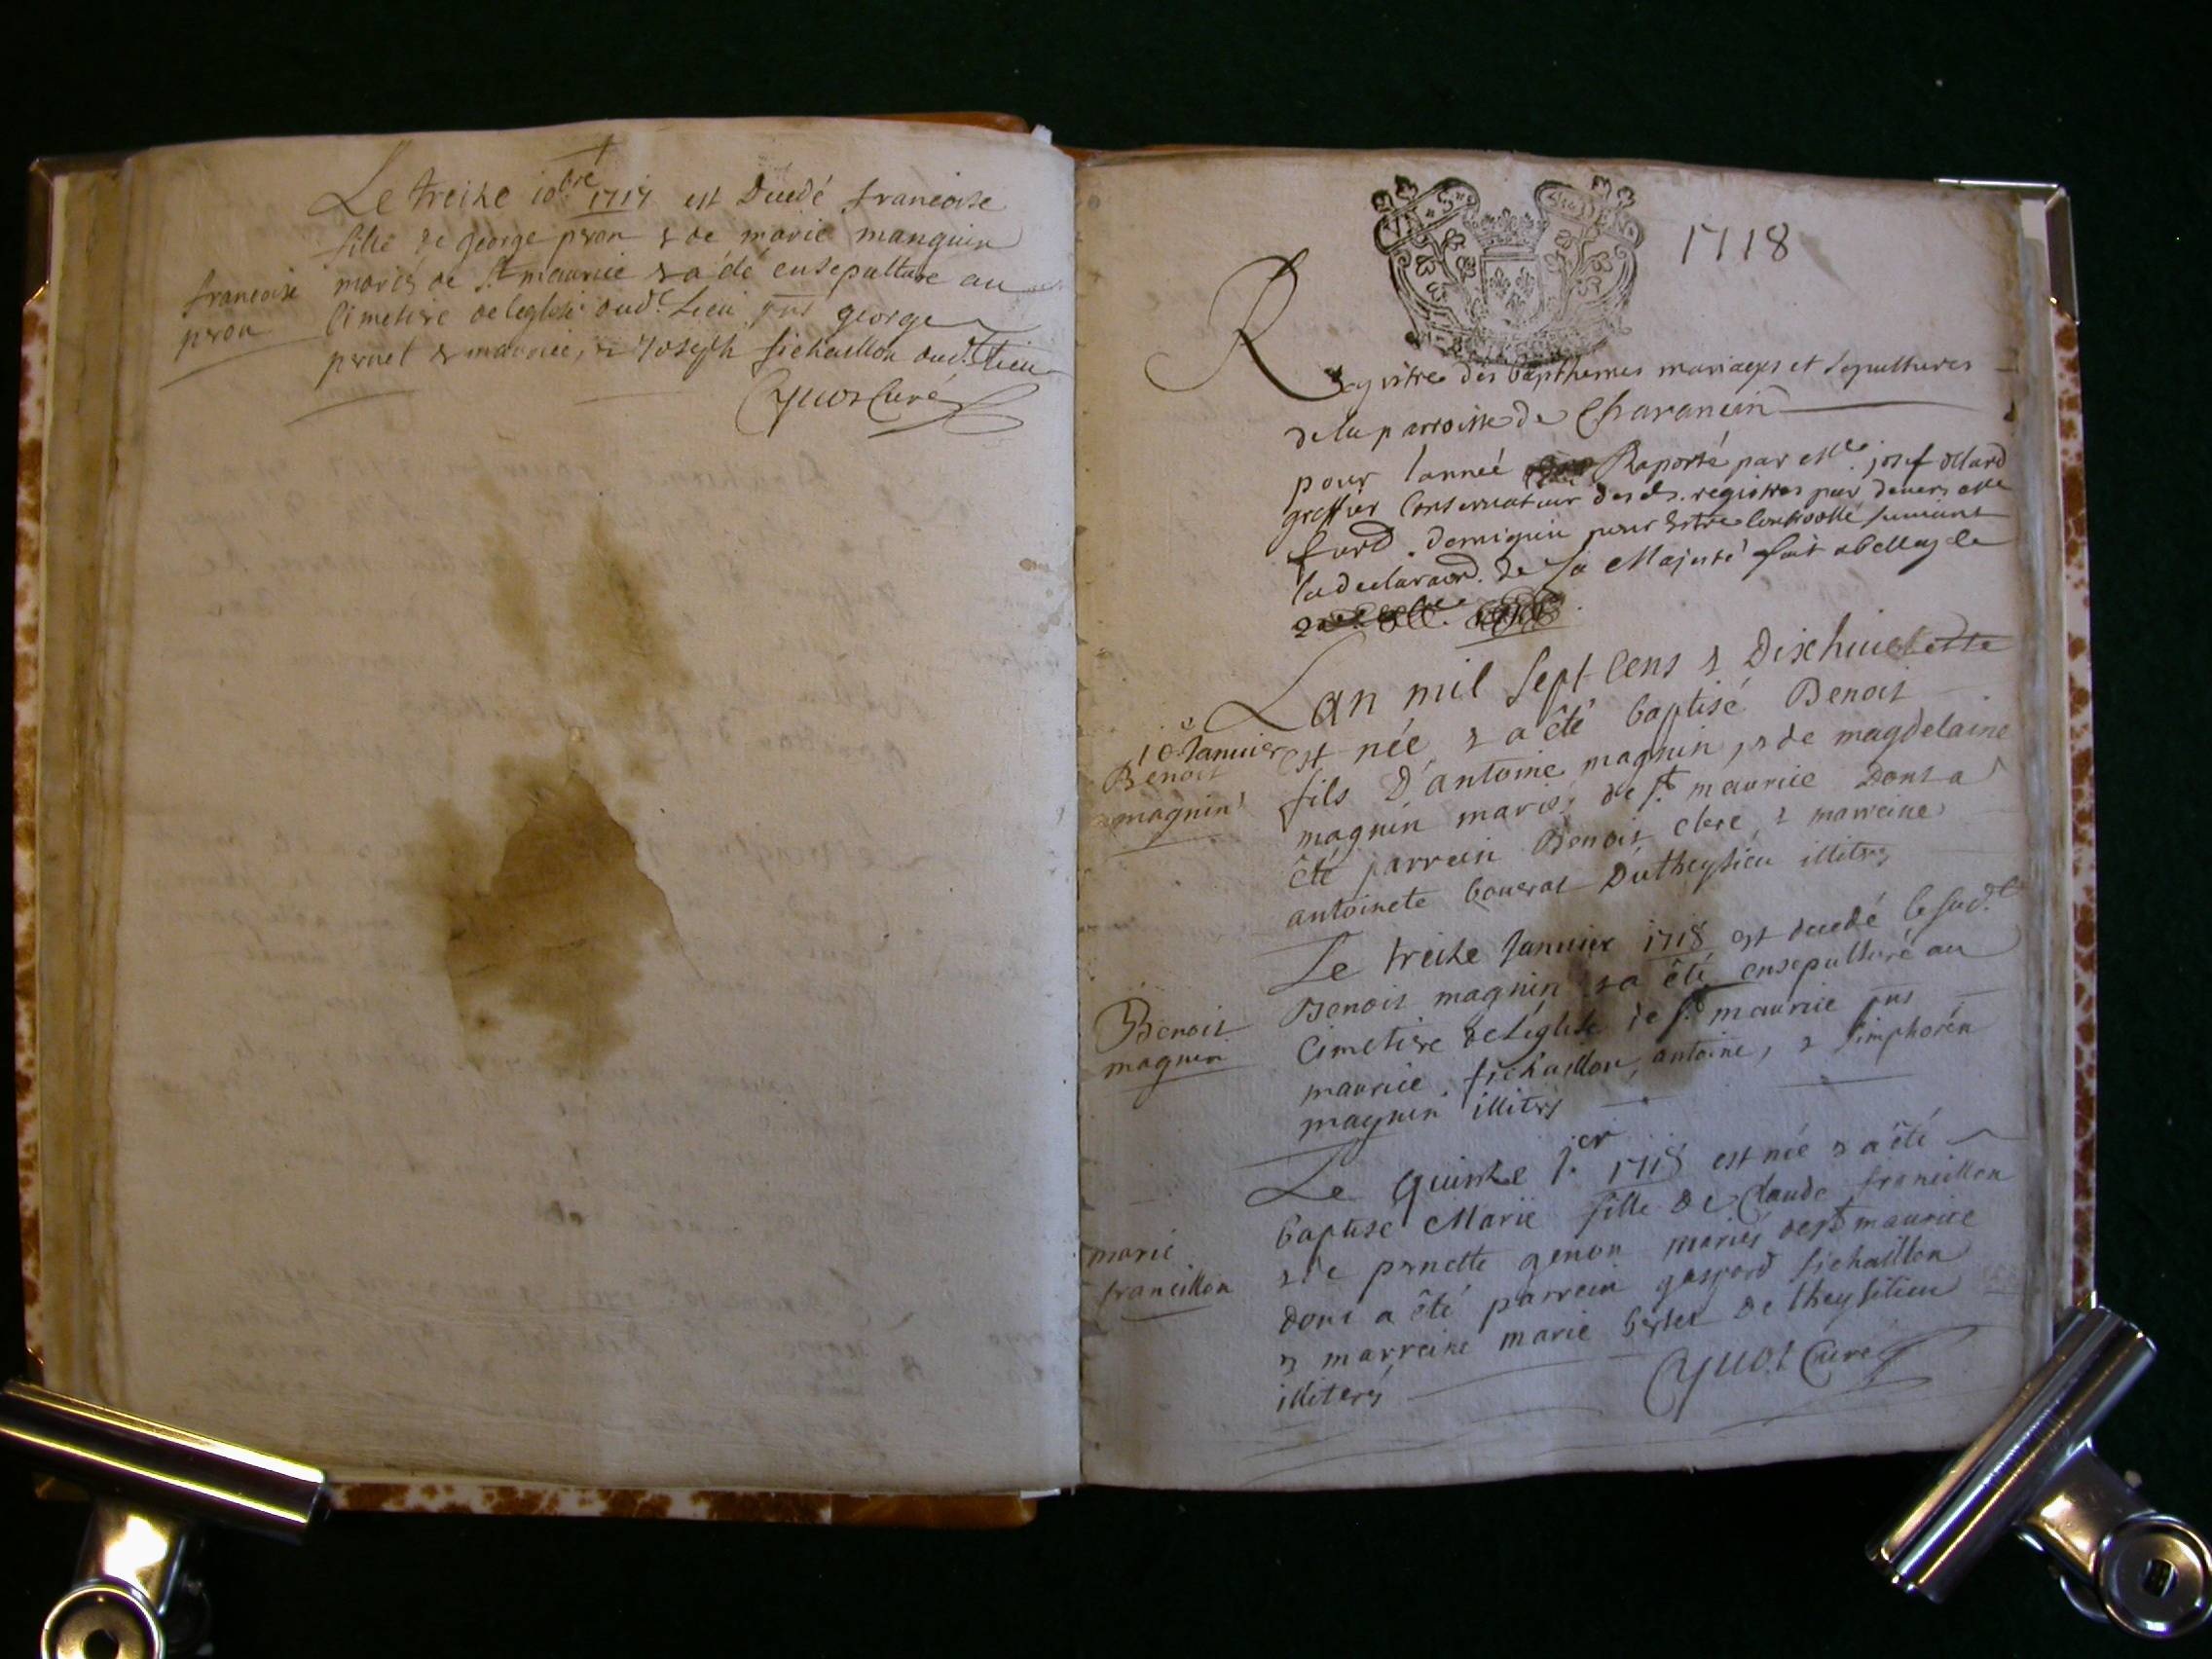 Le treize 10bre 1717 est Decedé francoise
fille de george peron & de marie manguin
francoise
peron
mariés de St maurice & a été ensepulture au
Cimetiere de leglise dud. Lieu pnts george
pernet & maurice, & Joseph fichaillon dud. Lieu
Guot Curé
1718
Registre des bapthemes mariages et sepultures
de la parroisse de Charancin
pour lannée Raporté par Mre. josef
greffier Conservateur des ds. registres par devers
pour Estre Controollé suivant
la declaraon. de sa Majesté fait a Belley le
Lan mil sept Cens & Dixhuict
10e Janvier est née & a été baptisé Benoit
Benoit
magnin
fils D'antoine magnin, & de magdelaine
magnin mariés de St maurice Dont a
été parrein Benoit Clere & marreine
antoinete Dutheysieu illiterés
Le treize Janvier 1718 est decedé le sud.t
Benoit
magnin
Benoit magnin & a été ensepulturé au
Cimetiere de Leglise de St maurice pnts
maurice fichaillon, antoine, & simphorén
magnin illiterés
Le Quinze j.er 1718 est née & a été
marie
francillon
baptise Marie fille De Claude francillon
& de pernette genon mariés de St maurice
dont a été parrein gaspard fichaillon
& marreine marie De theysilieu
illiterés
Guot Curé